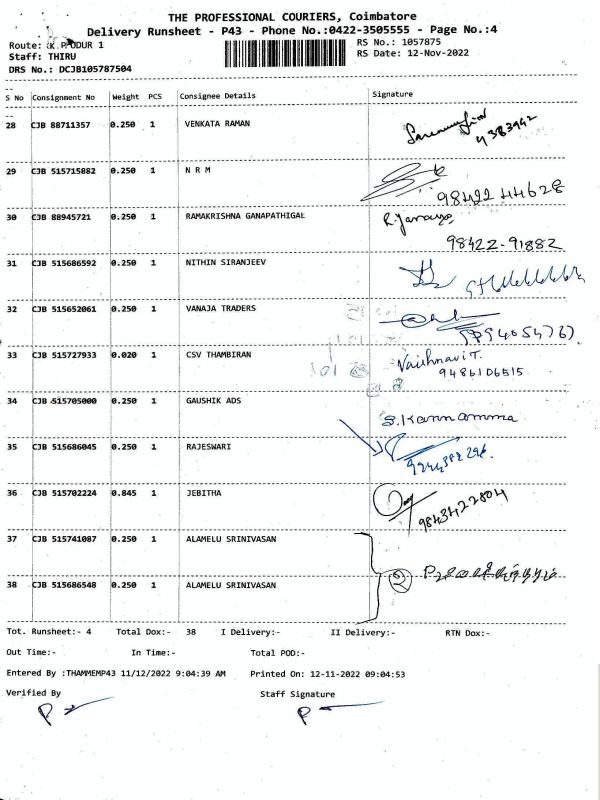 THE PROFESSIONAL COURIERS, Coimbatore
Delivery Runsheet - P43 - Phone No.:0422-3505555 - Page No.:4
Route: K.PUDUR 1 RS No.: 1057875
Staff: THIRU RS Date: 12-Nov-2022
DRS No.: DCJB105787504
S No Consignment No Weight PCS Consignee Details Signature
28 CJB 88711357 0.250 1 VENKATA RAMAN
9383942
29 CJB 515715882 0.250 1 N R M
98422 44628
30 CJB 88945721 0.250 1 RAMAKRISHNA GANAPATHIGAL
98422-91882
31 CJB 515686592 0.250 1 NITHIN SIRANJEEV
32 CJB 515652061 0.250 1 VANAJA TRADERS
33 CJB 515727933 0.020 1 CSV THAMBIRAN Vaishnavi T.
9486106515
34 CJB 515705000 0.250 1 GAUSHIK ADS S.Kannamma
35 CJB 515686045 0.250 1 RAJESWARI
36 CJB 515702224 0.845 1 JEBITHA
9843422804
37 CJB 515741087 0.250 1 ALAMELU SRINIVASAN
38 CJB 515686548 0.250 1 ALAMELU SRINIVASAN
2
Tot. Runsheet:- 4 Total Dox:- 38 I Delivery:- II Delivery:- RTN Dox:-
Out Time:- In Time:- Total POD:-
Entered By :THAMMEMP43 11/12/2022 9:04:39 AM Printed On: 12-11-2022 09:04:53
Verified By Staff Signature